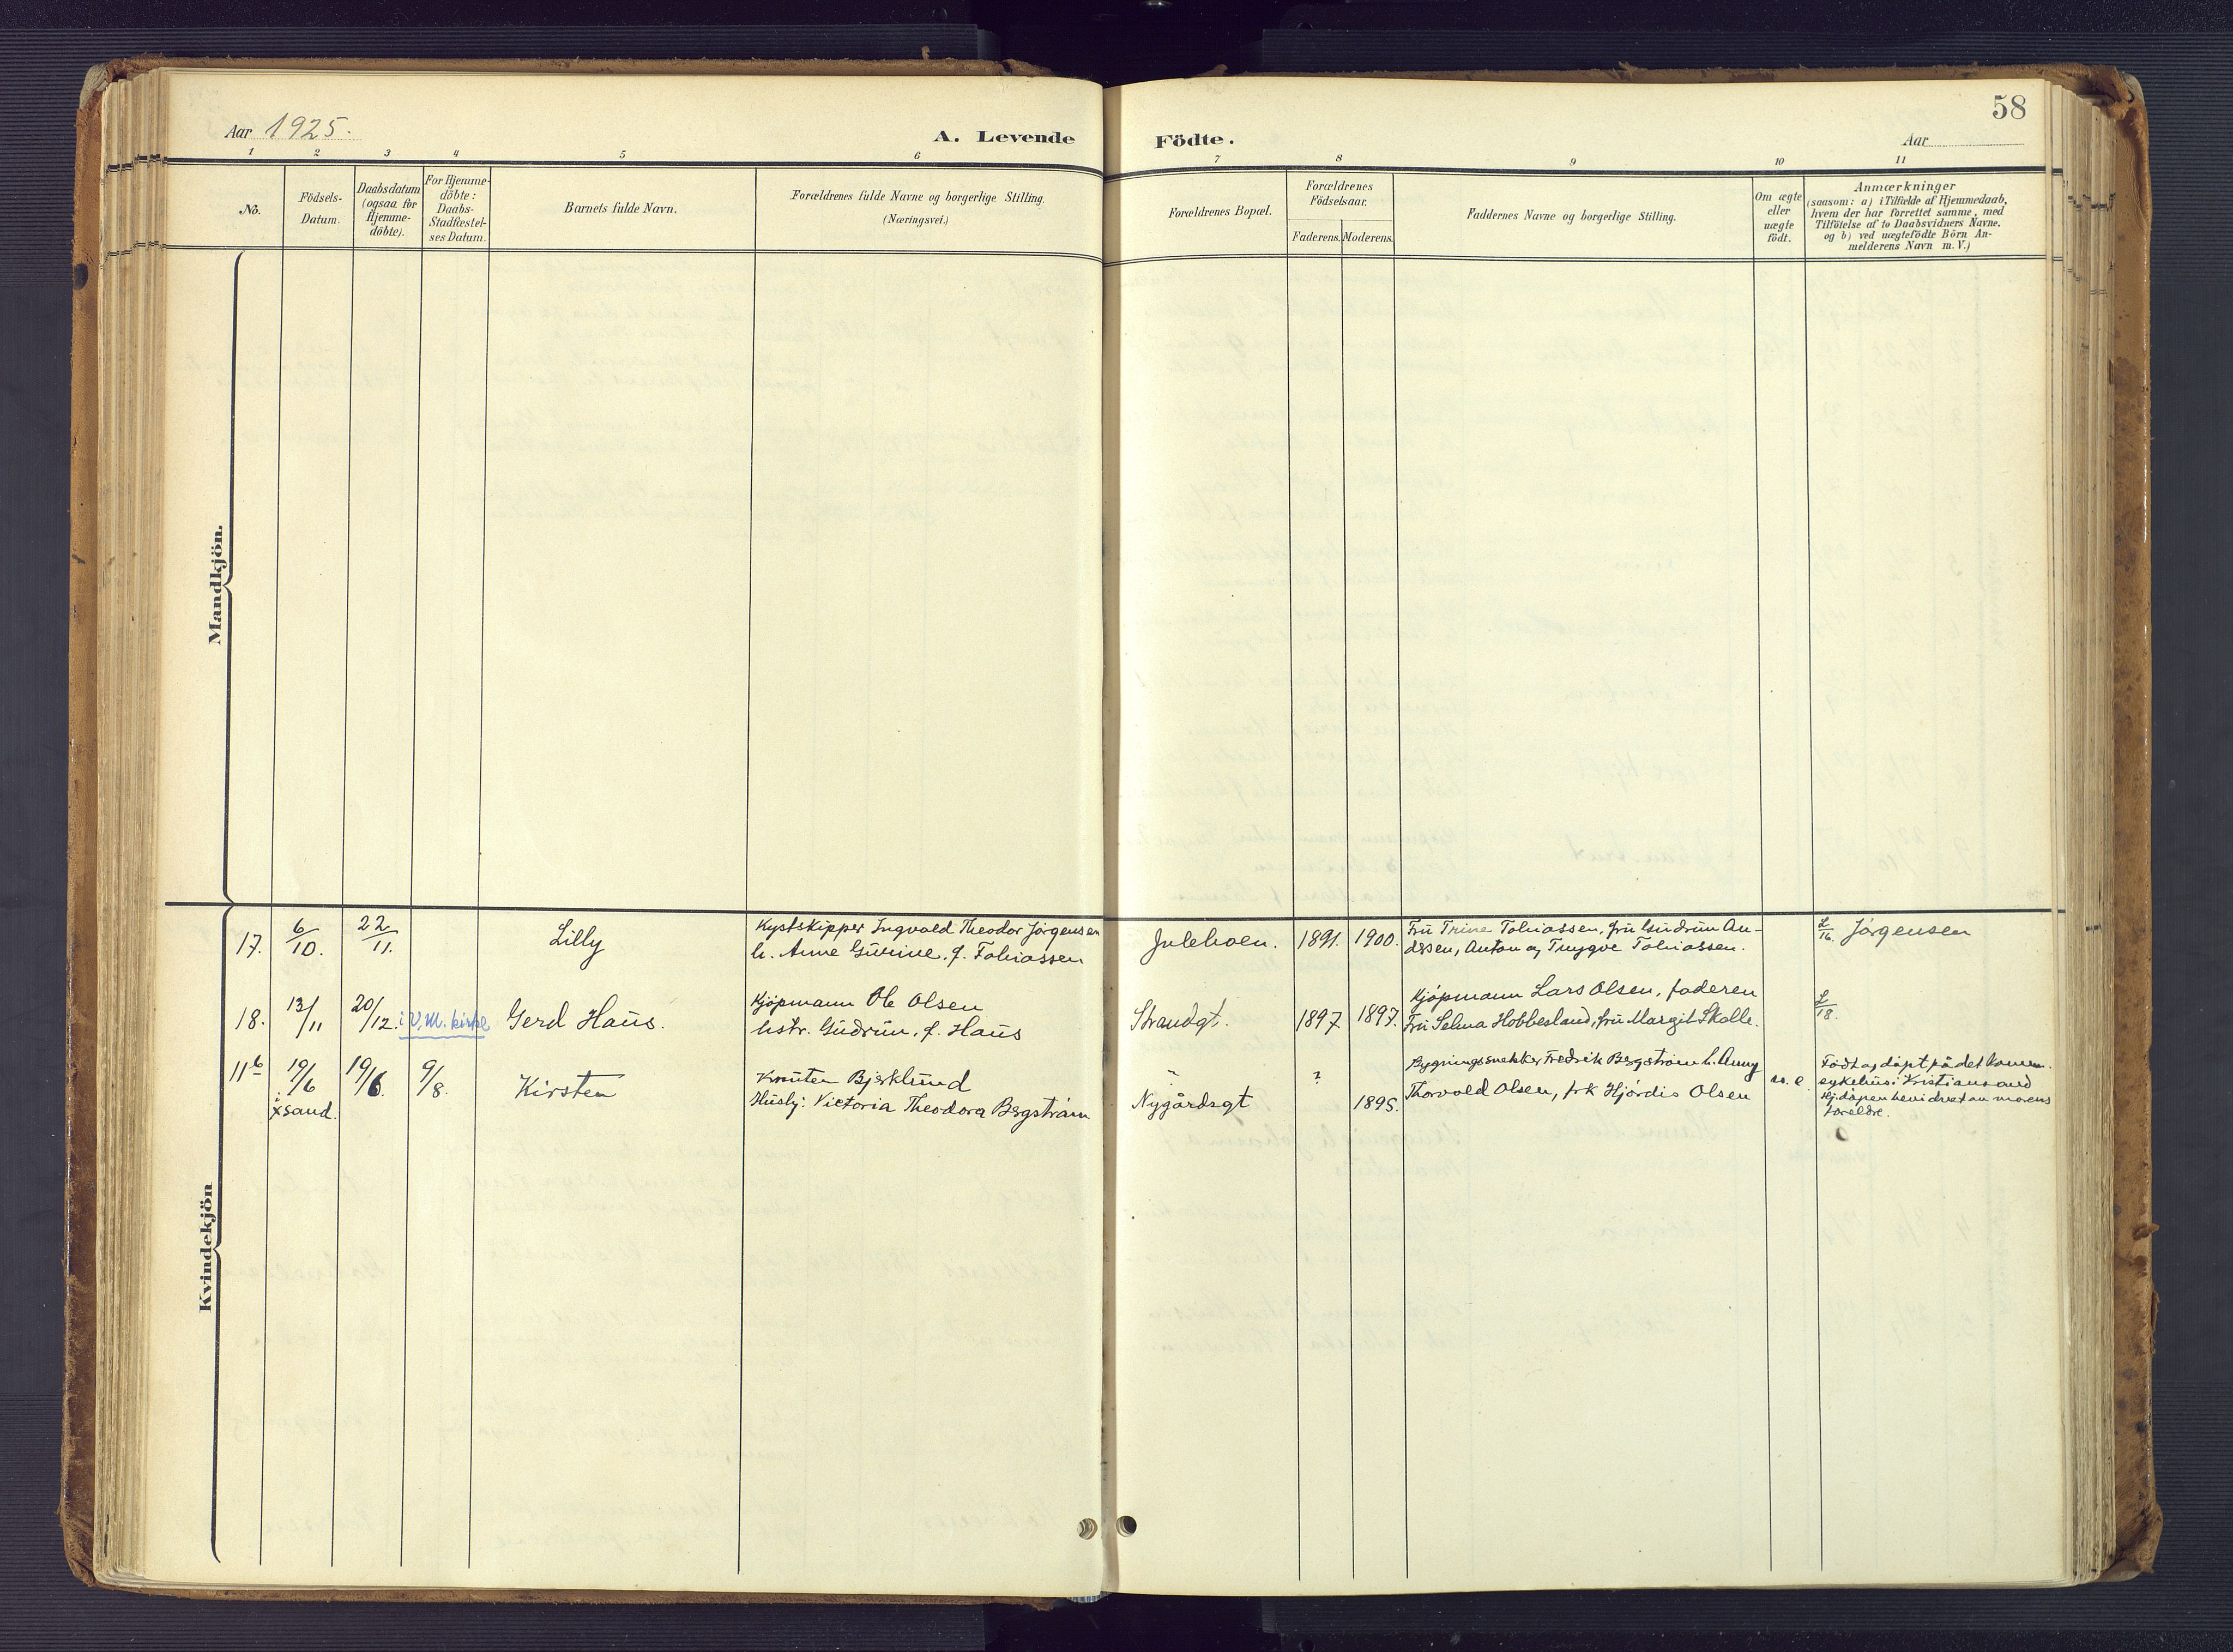 58
Aar 1925.
A. Levende Födte.
Aar
1 2 3 4 5 6 7 8 9 10 11
No.
Födsels-
Datum.
Daabsdatum
(ogsaa for
Hjemme-
döbte).
For Hjemme-
döbte:
Daabs-
Stadfæstel-
ses Datum.
Barnets fulde Navn.
Forældrenes fulde Navne og borgerlige Stilling.
(Næringsvei.)
Forældrenes Bopæl.
Forældrenes
Födselsaar.
Faderens. Moderens.
Faddernes Navne og borgerlige Stilling.
Om ægte
eller
uægte
födt.
Anmærkninger
(saasom: a) i Tilfælde af Hjemmedaab,
hvem der har forrettet samme, med
Tilföielse af to Daabsvidners Navne,
og b) ved uægtefödte Börn An-
melderens Navn m. V.)
Mandkjön.
Kvindekjön
17. 6/10. 22/11. Lilly
Kystskipper Ingvald Theodor Jörgensen
h. Anne f. Tobiassen
1891. 1900.
Fru Trine Tobiassen, fru Gudrun An-
dssen, Anton og Trygve Tobiassen.
L/16. Jörgensen
18. 13/11 20/12. i V.M. kirke Gerd Haus.
Kjöpmann Ole Olsen
hstr. Gudrun, f. Haus
Strandgt. 1897 1897.
Kjöpmann Lars Olsen, faderen
Fru Selma Hobbesland, fru Margit Skolle.
L/18.
11b 19/6 19/6. 9/8. Kirsten
i Xsand.
Knuten Bjerklund
Husbj: Victoria Theodora Bergström
Nygårdsgt ? 1895.
Bygningssnekker Fredrik Bergström h. Anny
Thorvald Olsen, frk Hjördis Olsen
u. e.
Födt og döpt på det komm.
sykehus i Kristiansand
Hj.dåpen bevidnet av morens
foreldre.